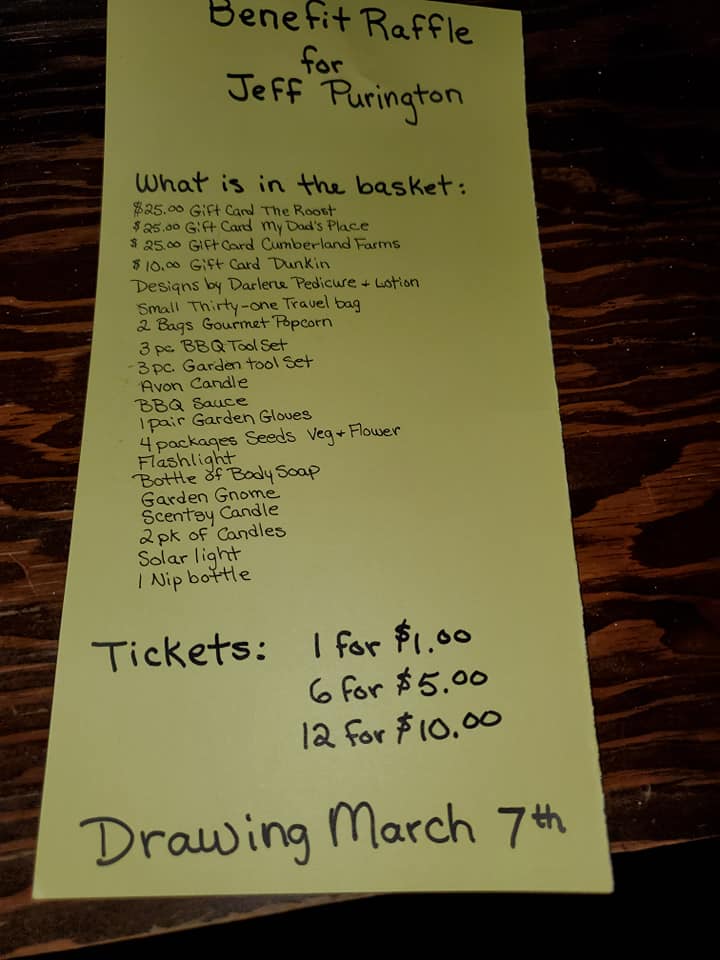 Benefit Raffle
for
Jeff Purington
What is in the basket:
$25.00 Gift Card The Roost
$25.00 Gift Card My Dad's Place
$25.00 Gift Card Cumberland Farms
$10.00 Gift Card Dunkin
Designs by Darlene Pedicure + Lotion
Small Thirty-one Travel bag
2 Bags Gourmet Popcorn
3 pc. BBQ Tool Set
3 pc. Garden tool Set
Avon Candle
BBQ Sauce
1 pair Garden Gloves
4 packages Seeds Veg + Flower
Flashlight
Bottle of Body Soap
Garden Gnome
Scentsy Candle
2 pk of Candles
Solar light
1 Nip bottle
Tickets: 1 for $1.00
6 for $5.00
12 for $10.00
Drawing March 7th